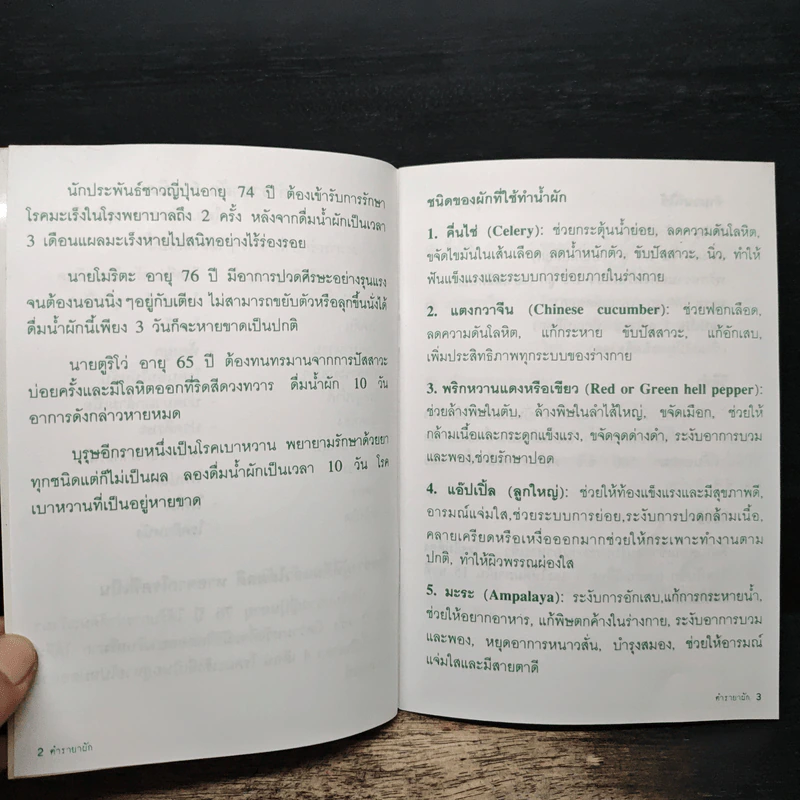 นักประพันธ์ชาวญี่ปุ่นอายุ 74 ปี ต้องเข้ารับการรักษา
โรคมะเร็งในโรงพยาบาลถึง 2 ครั้ง หลังจากดื่มน้ำผักเป็นเวลา
3 เดือนแผลมะเร็งหายไปสนิทอย่างไร้ร่องรอย
นายโมริตะ อายุ 76 ปี มีอาการปวดศีรษะอย่างรุนแรง
จนต้องนอนนิ่งๆอยู่กับเตียง ไม่สามารถขยับตัวหรือลุกขึ้นนั่งได้
ดื่มน้ำผักนี้เพียง 3 วันก็จะหายขาดเป็นปกติ
นายตูริโว่ อายุ 65 ปี ต้องทนทรมานจากการปัสสาวะ
บ่อยครั้งและมีโลหิตออกที่ริดสีดวงทวาร ดื่มน้ำผัก 10 วัน
อาการดังกล่าวหายหมด
บุรุษอีกรายหนึ่งเป็นโรคเบาหวาน พยายามรักษาด้วยยา
ทุกชนิดแต่ก็ไม่เป็นผล ลองดื่มน้ำผักเป็นเวลา 10 วัน โรค
เบาหวานที่เป็นอยู่หายขาด
2 ตำรายาผัก
ชนิดของผักที่ใช้ทำน้ำผัก
1. คื่นไช่ (Celery): ช่วยกระตุ้นน้ำย่อย, ลดความดันโลหิต,
ขจัดไขมันในเส้นเลือด ลดน้ำหนักตัว, ขับปัสสาวะ, นิ่ว, ทำให้
ฟันแข็งแรงและระบบการย่อยภายในร่างกาย
2. แตงกวาจีน (Chinese cucumber): ช่วยฟอกเลือด,
ลดความดันโลหิต, แก้กระหาย ขับปัสสาวะ, แก้อักเสบ,
เพิ่มประสิทธิภาพทุกระบบของร่างกาย
3. พริกหวานแดงหรือเขียว (Red or Green hell pepper):
ช่วยล้างพิษในตับ, ล้างพิษในลำไส้ใหญ่, ขจัดเมือก, ช่วยให้
กล้ามเนื้อและกระดูกแข็งแรง, ขจัดจุดด่างดำ, ระงับอาการบวม
และพอง,ช่วยรักษาปอด
4. แอ๊ปเปิ้ล (ลูกใหญ่): ช่วยให้ท้องแข็งแรงและมีสุขภาพดี,
อารมณ์แจ่มใส,ช่วยระบบการย่อย,ระงับการปวดกล้ามเนื้อ,
คลายเครียดหรือเหงื่อออกมากช่วยให้กระเพาะทำงานตาม
ปกติ, ทำให้ผิวพรรณผ่องใส
5. มะระ (Ampalaya): ระงับการอักเสบ,แก้การกระหายน้ำ,
ช่วยให้อยากอาหาร, แก้พิษตกค้างในร่างกาย, ระงับอาการบวม
และพอง, หยุดอาการหนาวสั่น, บำรุงสมอง, ช่วยให้อารมณ์
แจ่มใสและมีสายตาดี
ตำรายาผัก 3